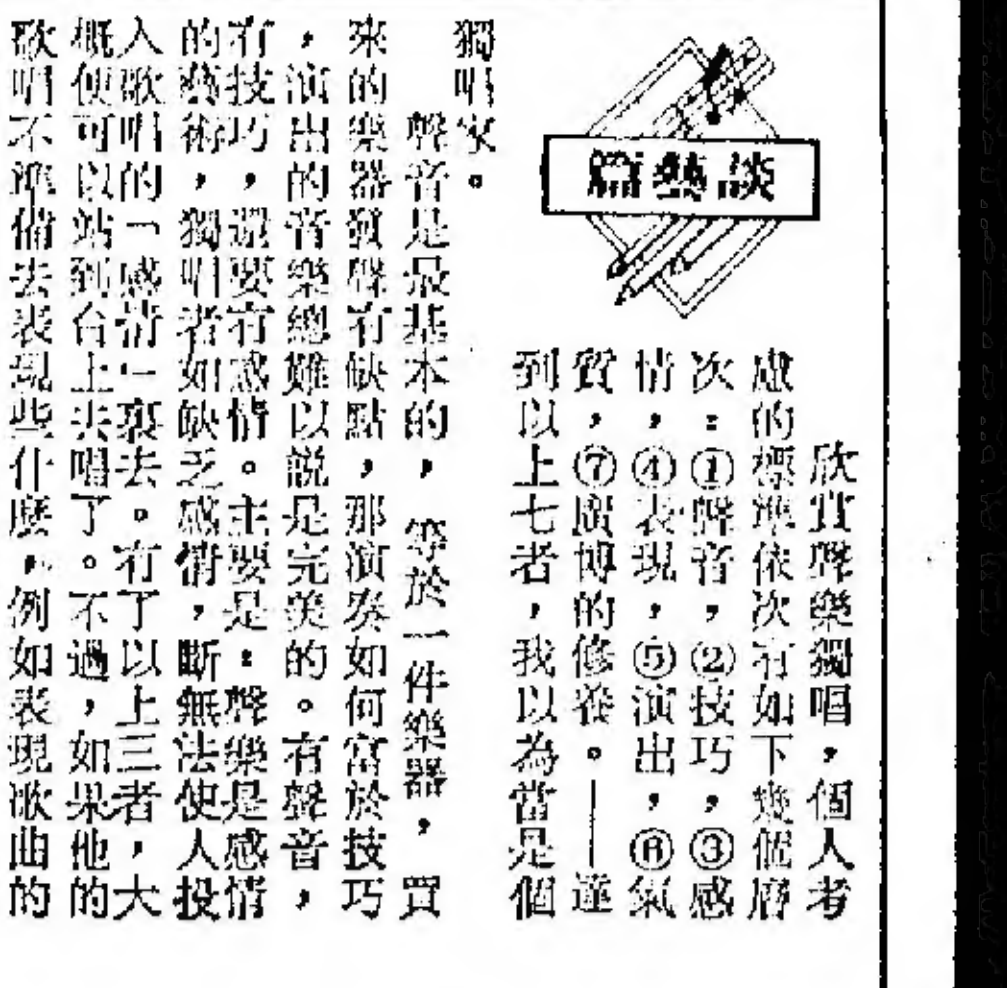 談藝篇
欣賞聲樂獨唱，個人考
慮的標準依次有如下幾個層
次：①聲音，②技巧，③感
情，④表現，⑤演出，⑥氣
質，⑦廣博的修養。——達
到以上七者，我以為當是個
獨唱家。
聲音是最基本的，等於一件樂器，買
來的樂器發聲有缺點，那演奏如何富於技巧
，演出的音樂總難以説是完美的。有聲音，
有技巧，還要有感情。主要是：聲樂是感情
的藝術，獨唱者如缺乏感情，斷無法使人投
入歌唱的一感情一裏去。有了以上三者，大
概便可以站到台上去唱了。不過，如果他的
歌唱不準備去表現些什麼，例如表現歌曲的